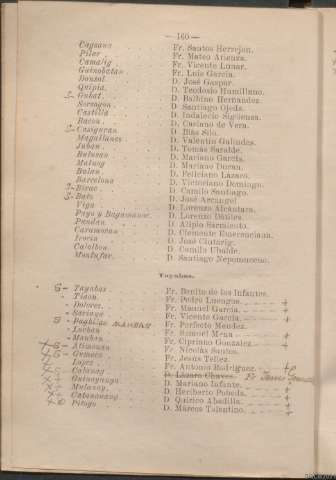 — 160 —
Cagsaua . . . Fr. Santos Herrejon.
Pilar . . . Fr. Mateo Atienza.
Camalig . . . Fr. Vicente Lunar.
Guinobatan . . . Fr. Luis García.
Donsol . . . D. José Gaspar.
Quipia . . . D. Teodosio Humillano.
S - Gubat . . . D. Balbino Hernandez.
Sorsogon . . . D. Santiago Ojeda.
Castilla . . . D. Indalecio Sigüenza.
Bacon . . . D. Casiano de Vera.
S - Casiguran . . . D. Blas Silo.
Magallanes . . . D. Valentin Galindes.
Juban . . . D. Tomás Saralde.
Bulusan . . . D. Mariano García.
Matnog . . . D. Mariano Duran.
Bulan . . . D. Feliciano Lázaro.
Barcelona . . . D. Victoriano Domingo.
Virac . . . D. Camilo Santiago.
S - Bato . . . D. José Arcangel
Viga . . . D. Lorenzo Alcántara.
Payo y Bagamanoc. D. Lorenzo
Pandan . . . D. Alipio Sarmiento.
Caramoran . . . D. Clemente Emerenciana.
Irocin . . . D. José
Calolbon . . . D. Camilo Ubalde.
Montufar . . . D. Santiago Nepomuceno.
Tayabas.
S - Tayabas . . . Fr. Benito de los Infantes.
Tiaon . . . Fr. Pedro Luengos. +
Dolores . . . Fr. Manuel García. +
Sariaya . . . Fr. Vicente García. +
S - Pagbilao MAUBAN Fr. Perfecto Mendez.
Lucban . . . Fr. Samuel Mena +
Mauban . . . Fr. Cipriano Gonzalez. +
Atimonan . . . Fr. Nicolás Santos.
Gumaca . . . Fr. Jesus Tellez.
Lopez . . . Fr. Antonio Rodriguez. +
Calauag . . . D. Lázaro Chaves. Fr
Guinayangan . . . D. Mariano Infante. +
Mulanay . . . D. Heriberto Pobeda. +
Catanauang . . . D. Quirico Abadilla. +
Pitogo . . . D. Márcos Tolentino. +